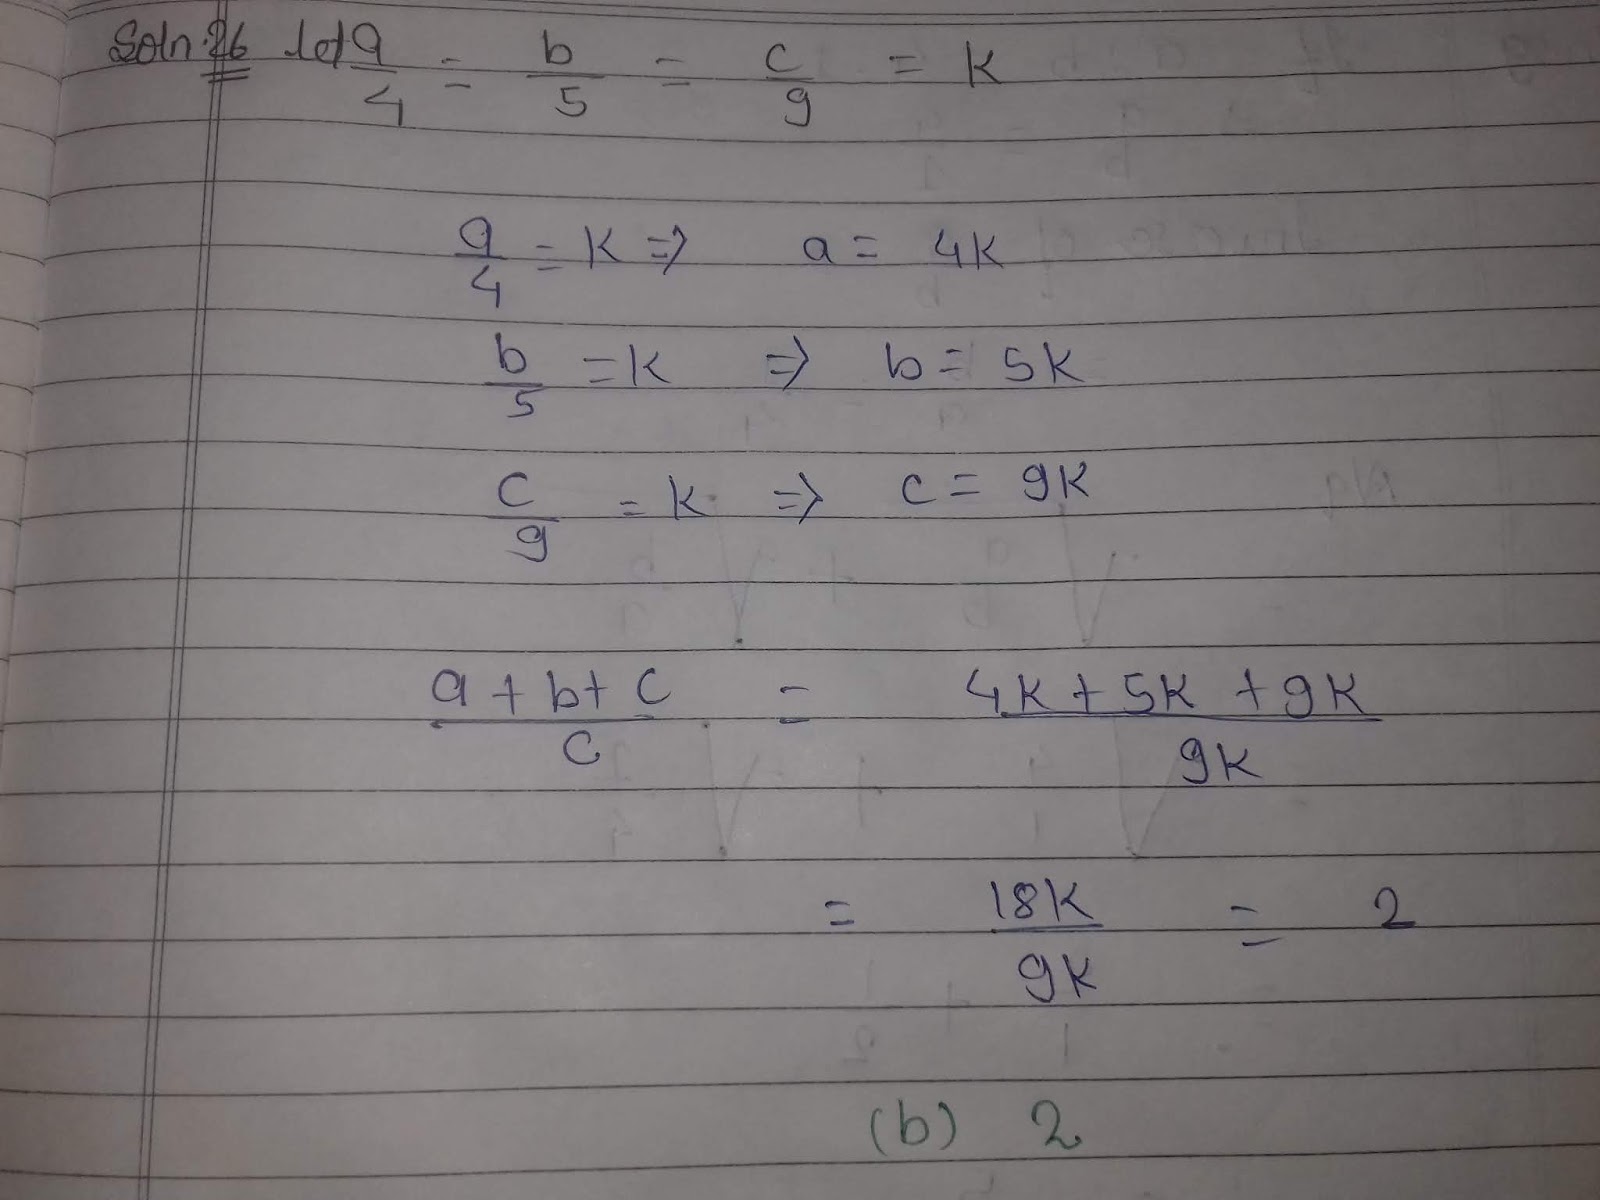 Soln.26 let a/4 = b/5 = c/9 = K
a/4 = K => a = 4K
b/5 = K => b = 5K
c/9 = K => c = 9K
a + b + c / c = 4K + 5K + 9K / 9K
= 18K / 9K = 2
(b) 2